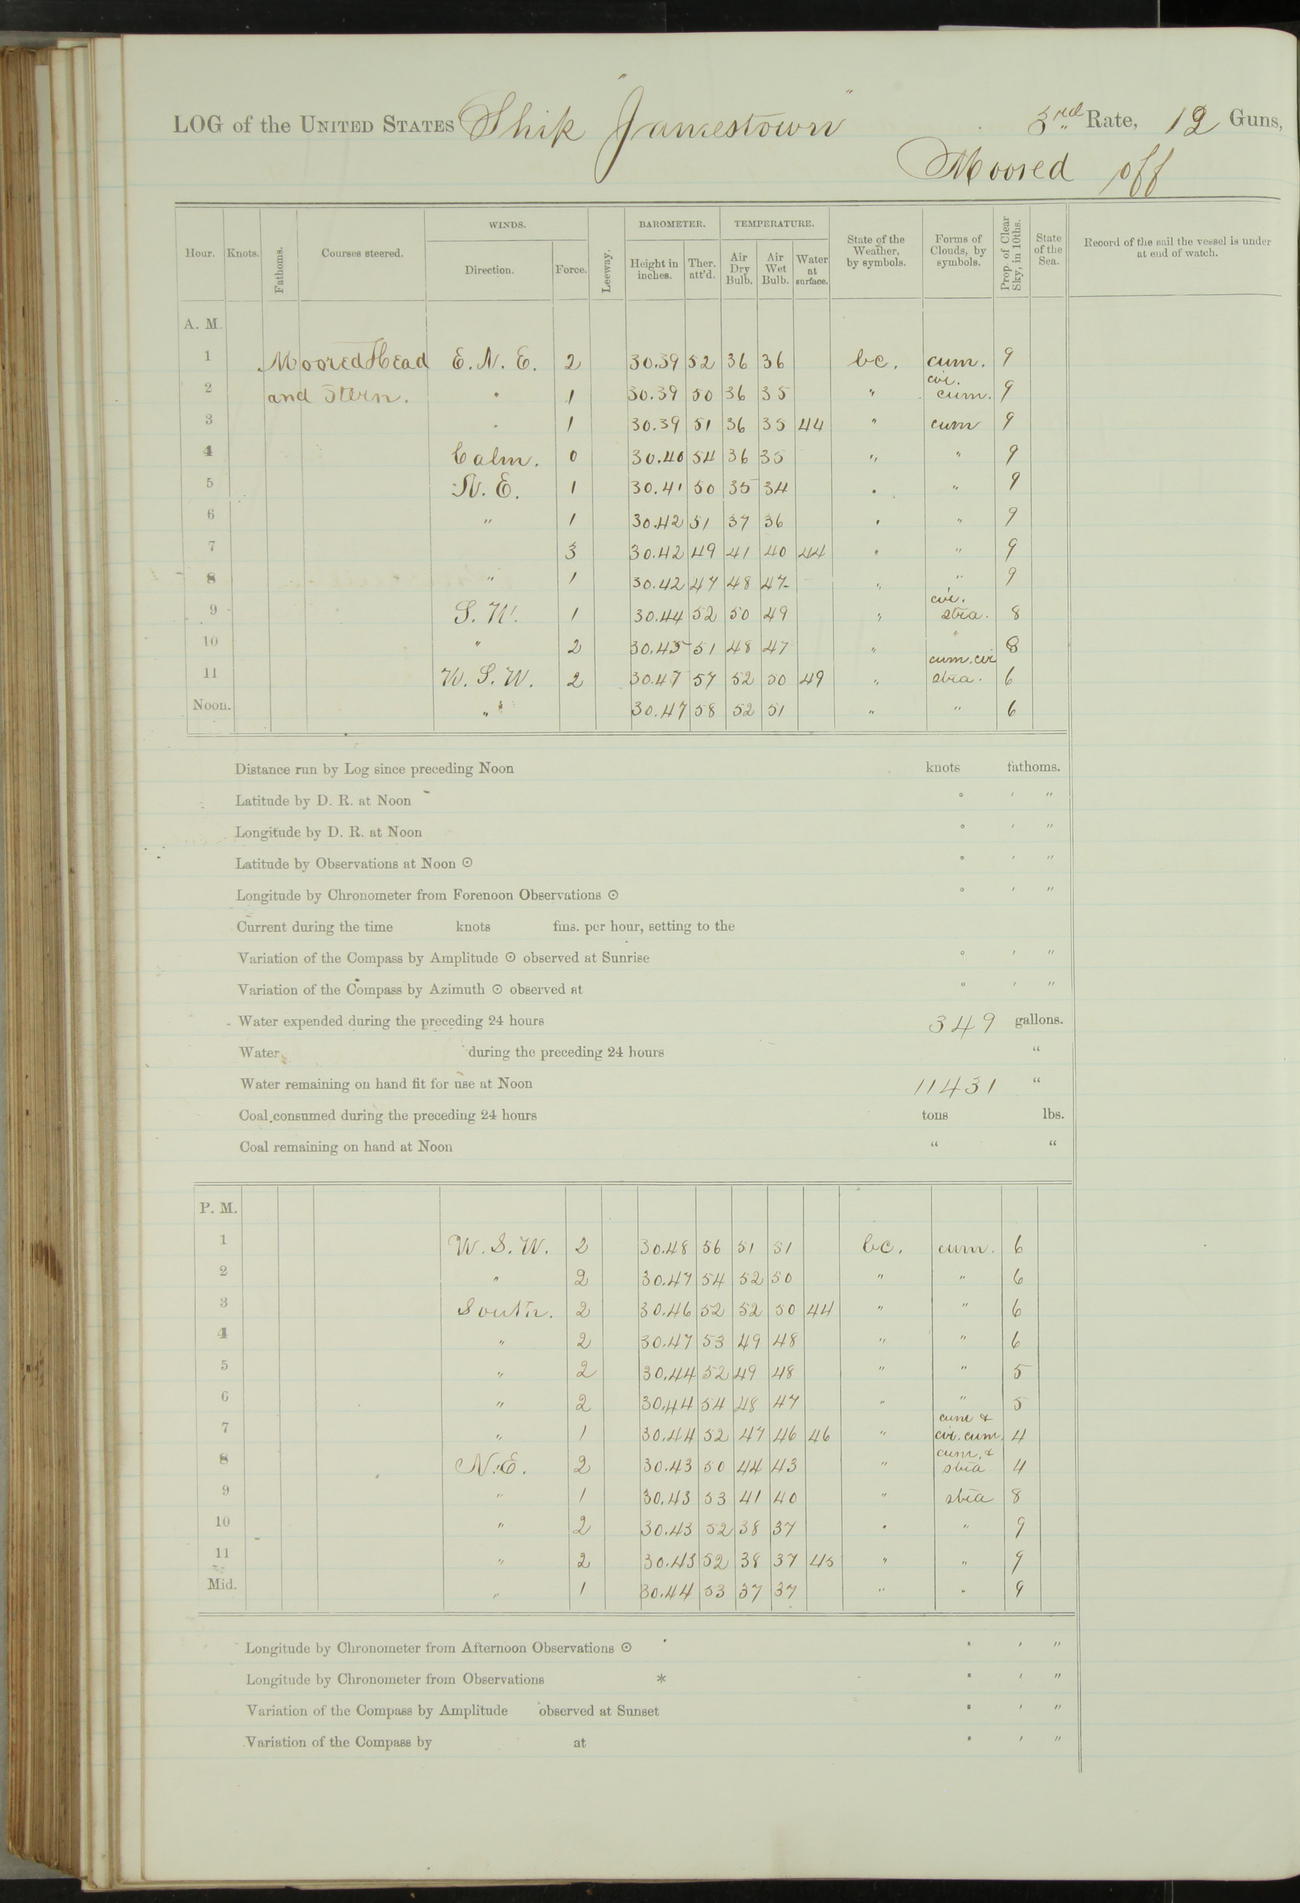 LOG of the UNITED STATES Ship "Jamestown" 3rd Rate, 12 Guns,
Moored off
Hour. Knots. Fathoms. Courses steered. WINDS. Direction. Force. Leeway. BAROMETER. Height in inches. Ther. att'd. TEMPERATURE. Air Dry Bulb. Air Wet Bulb. Water at surface. State of the Weather, by symbols. Forms of Clouds, by symbols. Prop. of Clear Sky, in 10ths. State of the Sea. Record of the sail the vessel is under at end of watch.
A. M.
1 Moored Head E. N. E. 2 30.39 52 36 36 bc. cum. 9
2 and Stern. " 1 30.39 50 36 35 " cir. cum. 9
3 " 1 30.39 51 36 35 44 " cum 9
4 Calm. 0 30.40 54 36 35 " " 9
5 N. E. 1 30.41 50 35 34 " " 9
6 " 1 30.42 51 37 36 " " 9
7 3 30.42 49 41 40 44 " " 9
8 " 1 30.42 47 48 47 " " 9
9 S. W. 1 30.44 52 50 49 " cir. stra. 8
10 " 2 30.45 51 48 47 " " 8
11 W. S. W. 2 30.47 57 52 50 49 " cum. cir stra. 6
Noon. " 30.47 58 52 51 " " 6
Distance run by Log since preceding Noon knots fathoms.
Latitude by D. R. at Noon ° ' "
Longitude by D. R. at Noon ° ' "
Latitude by Observations at Noon ☉ ° ' "
Longitude by Chronometer from Forenoon Observations ☉ ° ' "
Current during the time knots fms. per hour, setting to the
Variation of the Compass by Amplitude ☉ observed at Sunrise ° ' "
Variation of the Compass by Azimuth ☉ observed at ° ' "
Water expended during the preceding 24 hours 349 gallons.
Water during the preceding 24 hours "
Water remaining on hand fit for use at Noon 11431 "
Coal consumed during the preceding 24 hours tons lbs.
Coal remaining on hand at Noon " "
P. M.
1 W. S. W. 2 30.48 56 51 51 bc. cum. 6
2 " 2 30.47 54 52 50 " " 6
3 South. 2 30.46 52 52 50 44 " " 6
4 " 2 30.47 53 49 48 " " 6
5 " 2 30.44 52 49 48 " " 5
6 " 2 30.44 54 48 47 " " 5
7 " 1 30.44 52 47 46 46 " cum & cir. cum. 4
8 N. E. 2 30.43 50 44 43 " cum. & stra 4
9 " 1 30.43 53 41 40 " stra 8
10 " 2 30.43 52 38 37 " " 9
11 " 2 30.43 52 38 37 45 " " 9
Mid. " 1 30.44 53 37 37 " " 9
Longitude by Chronometer from Afternoon Observations ☉ ° ' "
Longitude by Chronometer from Observations * ° ' "
Variation of the Compass by Amplitude observed at Sunset ° ' "
Variation of the Compass by at ° ' "